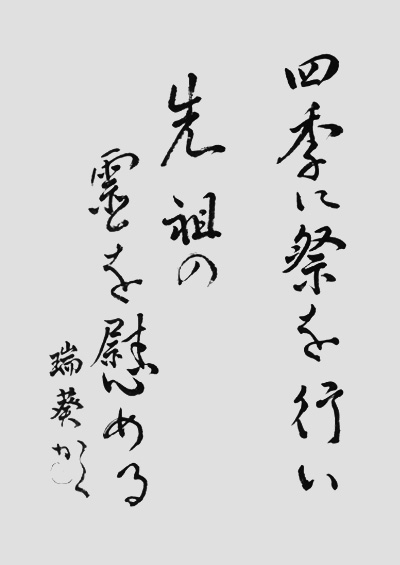 四季に祭を行い
先祖の
霊を慰める
瑞葵かく